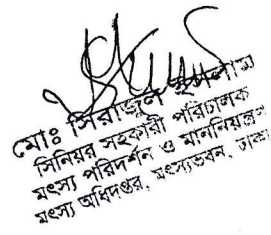 মোঃ সিরাজুল ইসলাম
সিনিয়র সহকারী পরিচালক
মৎস্য পরিদর্শন ও মাননিয়ন্ত্রণ
মৎস্য অধিদপ্তর, মৎস্যভবন, ঢাকা